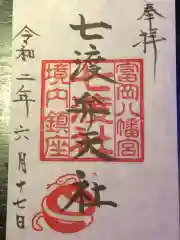 奉拝
七渡弁天社
富岡八幡宮
境内鎮座
令和二年六月十七日